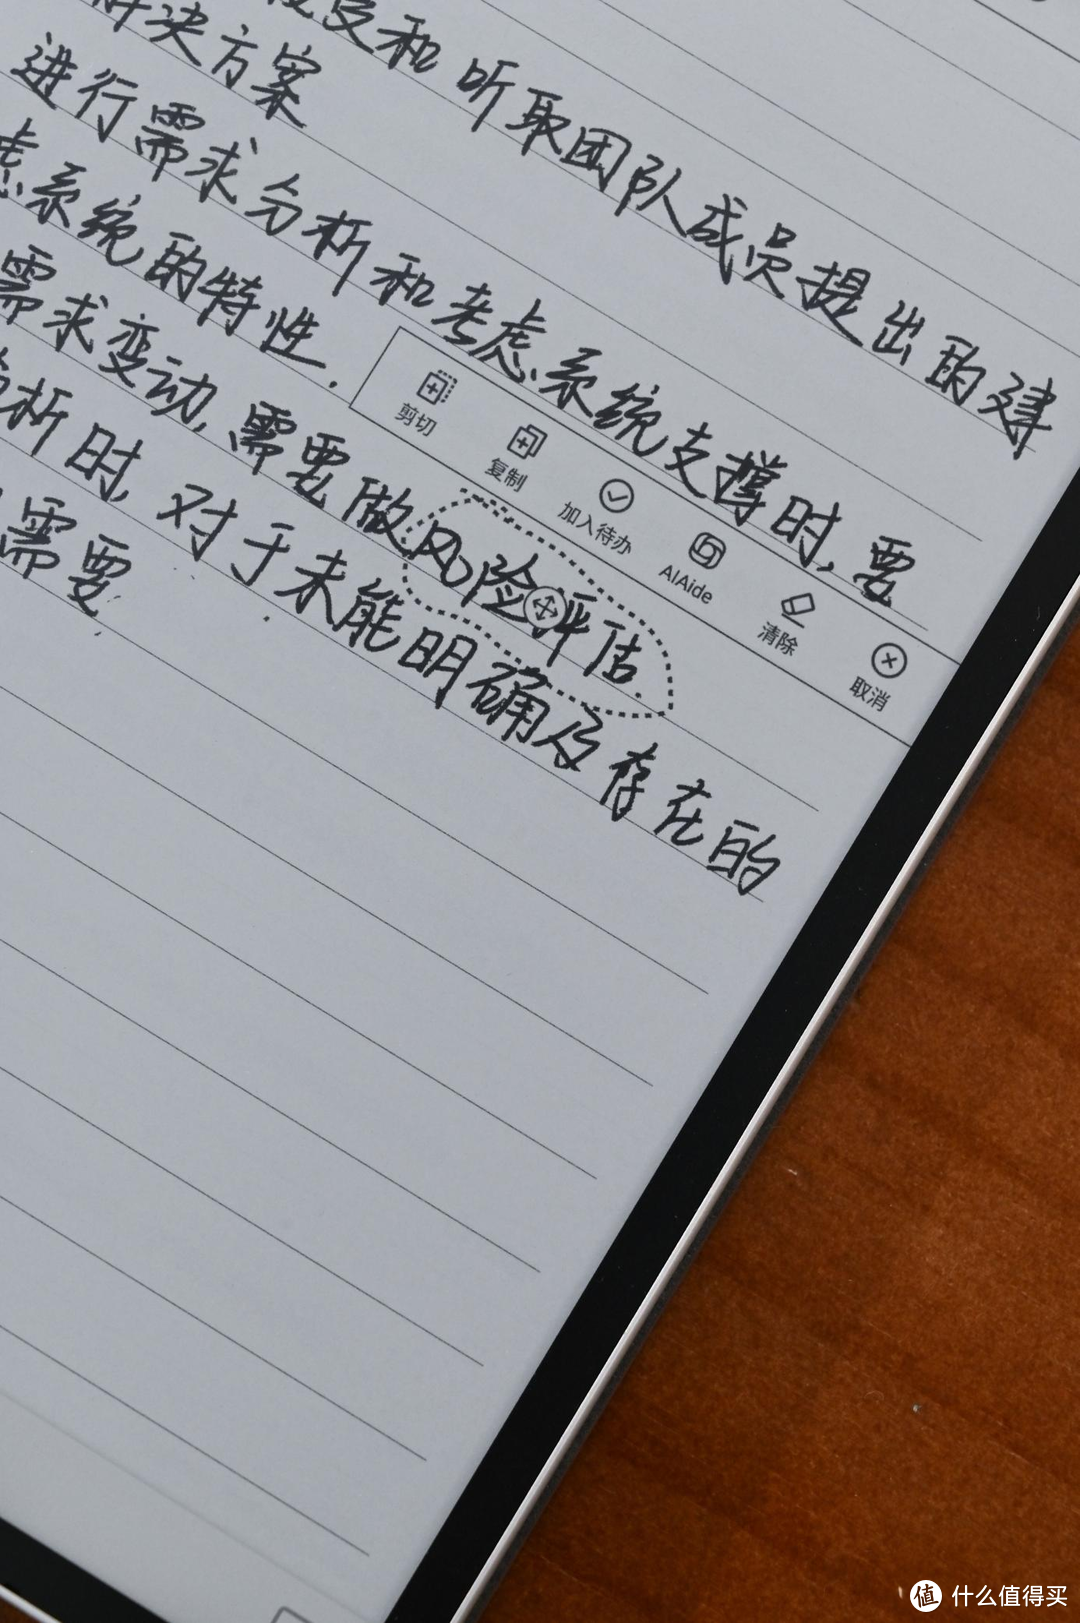 和听取团队成员提出的建
解决方案
进行需求分析和考虑系统支撑时,要
虑系统的特性.
剪切 复制 加入待办 AIAide 清除 取消
需求变动,需要做风险评估.
析时,对于未能明确及存在的
需要
值 什么值得买